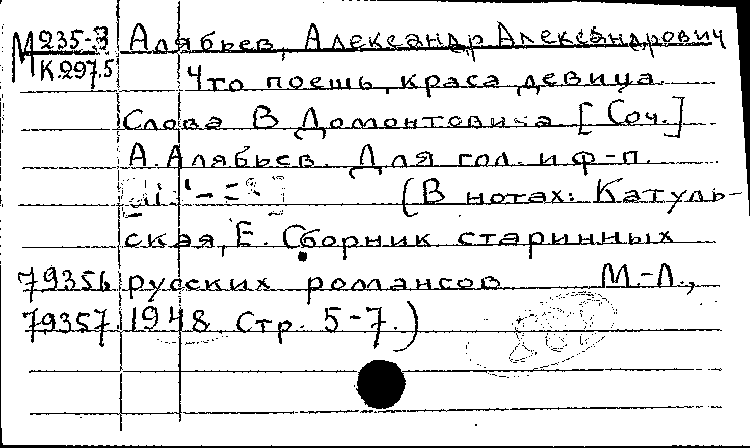 М 235-3 Алябьев, Александр Александрович
К.297.5 Что поешь, краса девица.
Слова В Домонтовича [Соч.]
А. Алябьев. Для гол. и ф-п.
(В нотах: Катуль-
ская, Е. Сборник старинных
79356 русских романсов М.-Л.,
79357 1948. Стр. 5-7.)